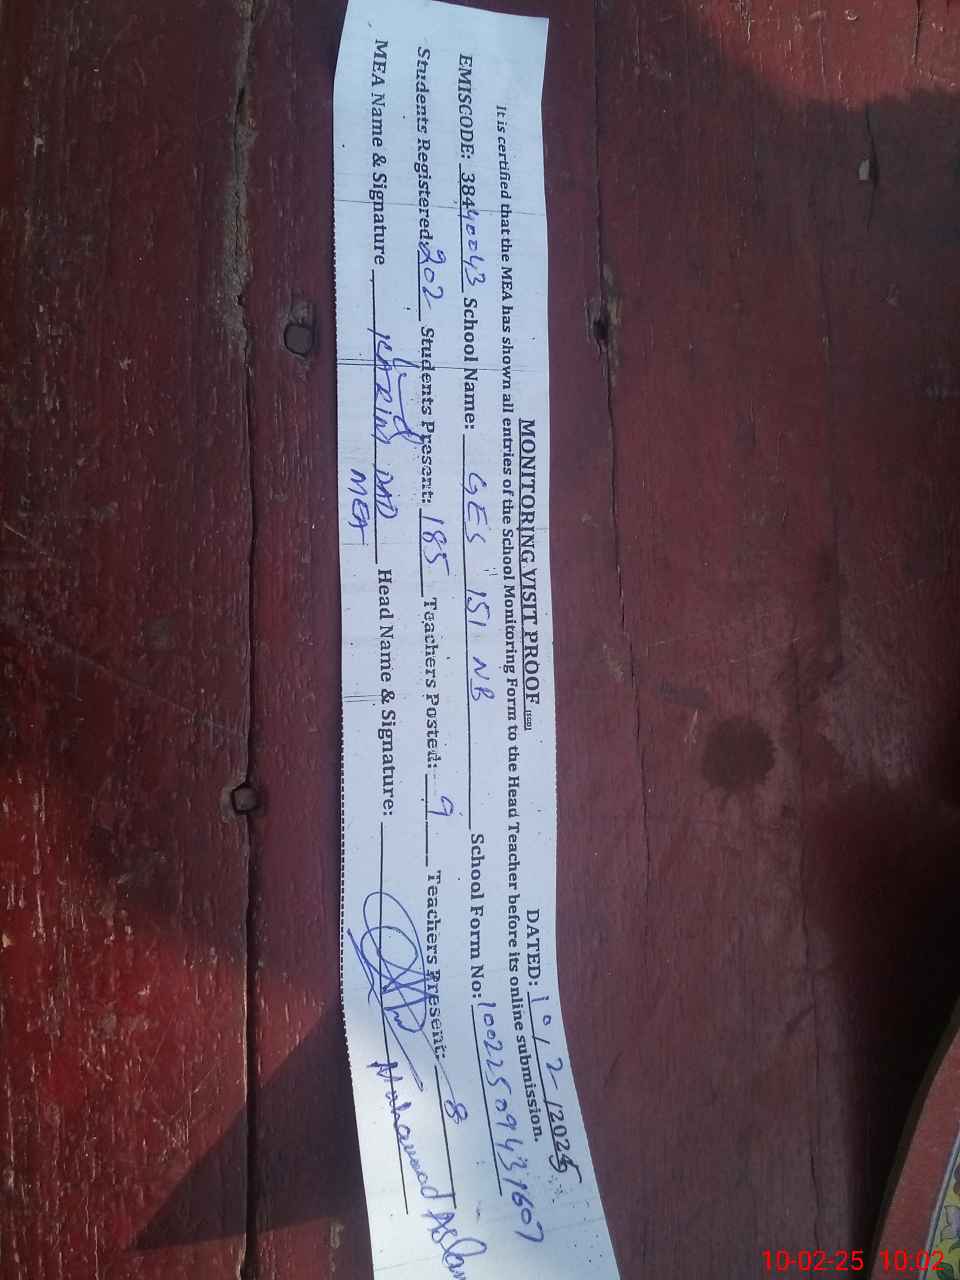 MONITORING VISIT PROOF (SED) DATED: 10/2/2025
It is certified that the MEA has shown all entries of the School Monitoring Form to the Head Teacher before its online submission.
EMISCODE: 38440043 School Name: GES 151 NB School Form No: 10022509431607
Students Registered: 202 Students Present: 185 Teachers Posted: 9 Teachers Present: 8
MEA Name & Signature KARIM DAD Head Name & Signature: Mohammad Aslam
MEA
10-02-25 10:02